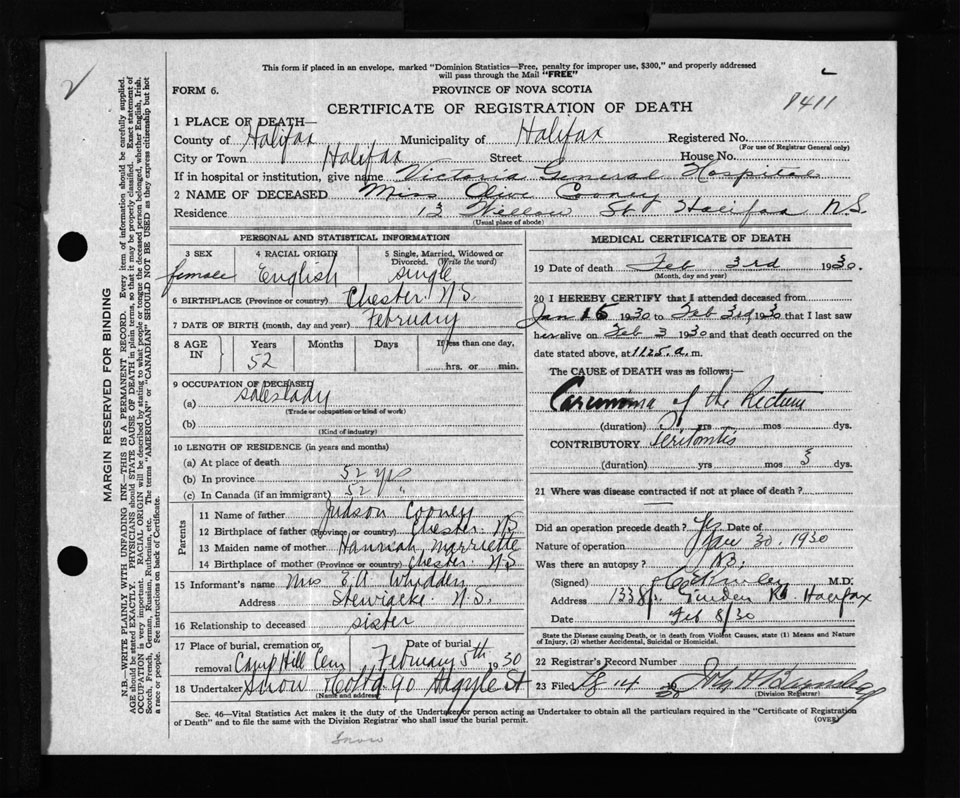 This form if placed in an envelope, marked "Dominion Statistics—Free, penalty for improper use, $300," and properly addressed
will pass through the Mail "FREE"
FORM 6.
PROVINCE OF NOVA SCOTIA
CERTIFICATE OF REGISTRATION OF DEATH
8411
1 PLACE OF DEATH—
County of Halifax Municipality of Halifax Registered No.
(For use of Registrar General only)
City or Town Halifax Street House No.
If in hospital or institution, give name Victoria General Hospital
2 NAME OF DECEASED Miss Olive Cooney
Residence 13 Willow St Halifax N.S.
(Usual place of abode)
MARGIN RESERVED FOR BINDING
N.B.—WRITE PLAINLY WITH UNFADING INK—THIS IS A PERMANENT RECORD. Every item of information should be carefully supplied.
AGE should be stated EXACTLY. PHYSICIANS should STATE CAUSE OF DEATH in plain terms, so that it may be properly classified. Exact statement of
OCCUPATION is very important. RACIAL ORIGIN will be described by stating to what people or tongue the deceased person belonged, whether English, Irish,
Scotch, French, German, Russian, Ruthenian, etc. The terms "AMERICAN" or "CANADIAN" SHOULD NOT BE USED as they express citizenship but not
a race or people. See instructions on back of Certificate.
PERSONAL AND STATISTICAL INFORMATION
3 SEX
female
4 RACIAL ORIGIN
English
5 Single, Married, Widowed or
Divorced. (Write the word)
single
6 BIRTHPLACE (Province or country) Chester N.S.
7 DATE OF BIRTH (month, day and year) February
8 AGE IN
Years Months Days If less than one day,
52 hrs. or min.
9 OCCUPATION OF DECEASED
(a) saleslady
(Trade or occupation or kind of work)
(b)
(Kind of industry)
10 LENGTH OF RESIDENCE (in years and months)
(a) At place of death
(b) In province 52 yrs
(c) In Canada (if an immigrant) 52 "
Parents
11 Name of father Judson Cooney
12 Birthplace of father (Province or country) Chester N.S
13 Maiden name of mother Hannah Marriette
14 Birthplace of mother (Province or country) Chester N.S
15 Informant's name Mrs E A Whidden
Address Stewiacke N.S.
16 Relationship to deceased sister
17 Place of burial, cremation or Date of burial
removal Camp Hill Cem February 5th 1930
18 Undertaker Snow & Co Ltd 90 Argyle St
(Name and address)
MEDICAL CERTIFICATE OF DEATH
19 Date of death Feb 3rd 1930.
(Month, day and year)
20 I HEREBY CERTIFY that I attended deceased from
Jan 16 1930 to Feb 3rd 1930 that I last saw
her alive on Feb 3 1930 and that death occurred on the
date stated above, at 11.25 a. m.
The CAUSE of DEATH was as follows:—
Carcinoma of the Rectum
(duration) yrs mos dys.
CONTRIBUTORY Peritonitis
(duration) yrs mos 3 dys.
21 Where was disease contracted if not at place of death?
Did an operation precede death? Yes Date of
Nature of operation Jan 30. 1930
Was there an autopsy? No.
(Signed) M.D.
Address Rd. Halifax
Date Feb 8/30
State the Disease causing Death, or in death from Violent Causes, state (1) Means and Nature
of Injury, (2) whether Accidental, Suicidal or Homicidal.
22 Registrar's Record Number
23 Filed 14
(Division Registrar)
Sec. 46—Vital Statistics Act makes it the duty of the Undertaker or person acting as Undertaker to obtain all the particulars required in the "Certificate of Registration
of Death" and to file the same with the Division Registrar who shall issue the burial permit.
(OVER)
Snow